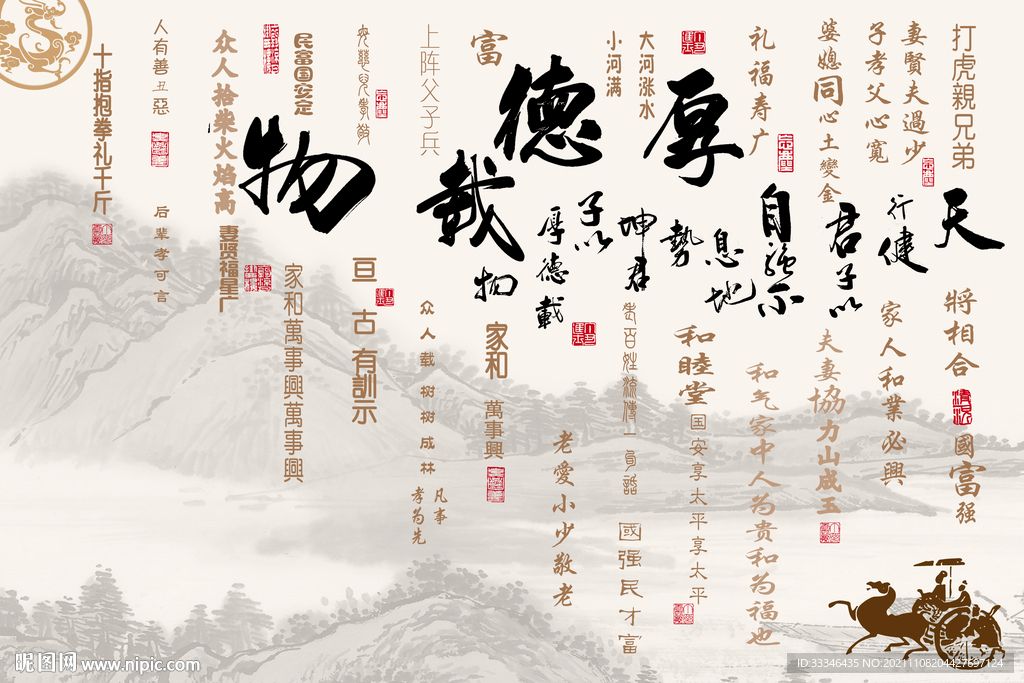 厚德載物
天行健
君子以
自強不
息地
勢
坤君
子以
厚德載
物
打虎親兄弟
將相合
國富强
妻賢夫過少
子孝父心寬
家人和業必興
婆媳同心土變金
夫妻協力山成玉
礼福寿广
和气家中人为贵和为福也
和睦堂
国安享太平享太平
大河涨水
小河满
國强民才富
老愛小少敬老
富
家和
萬事興
上阵父子兵
众人载树树成林
凡事
孝为先
亘古有訓示
民富国安定
家和萬事興萬事興
众人拾柴火焰高
妻贤福星广
人有善丑惡
后辈孝可言
十指抱拳礼千斤
昵图网 www.nipic.com
ID:33346435 NO:20211108204427697124